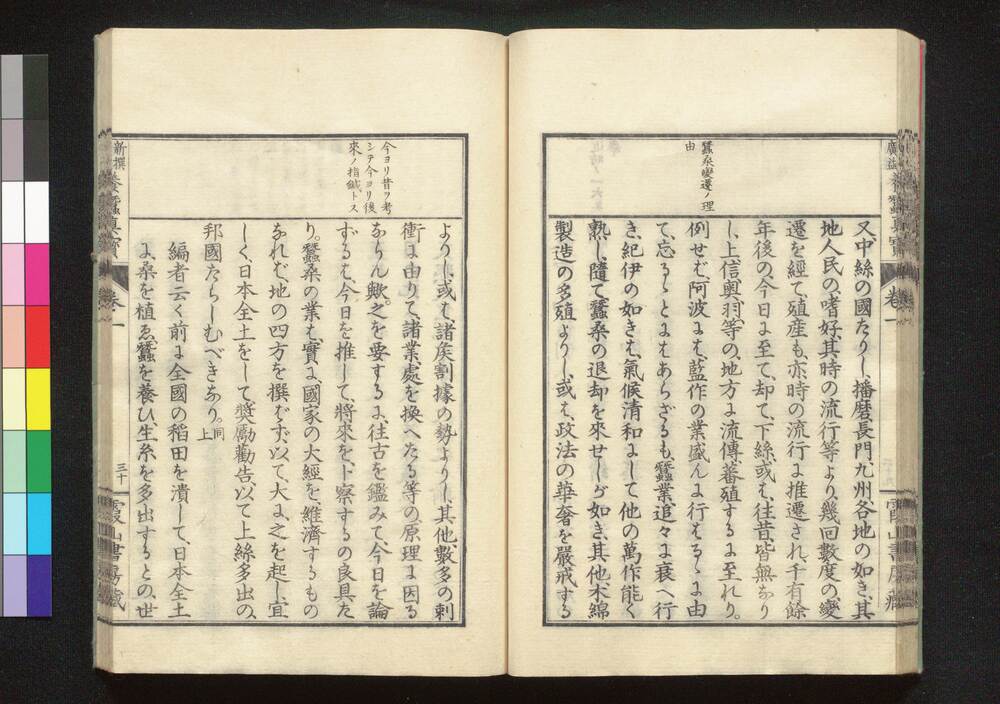 蠶桑變遷ノ理
由
又中絲の國たりし、播磨、長門、九州、各地の如き、其
地人民の、嗜好、其時の流行等より、幾回數度の、變
遷を經て、殖産も、亦時の流行に推遷され、千有餘
年後の、今日に至て、却て、下絲、或は、往昔、皆無なり
し、上信奧羽、等の、地方に流傳蕃殖するに至れり。
例せば、阿波には、藍作の業盛んに行はるゝに由
て、忘るゝとにはあらざるも、蠶業、追々に衰へ行
き、紀伊の如きは、氣候清和にして、他の萬作能く
熟し、隨て蠶桑の退却を來せしが如き、其他、木綿
製造の多殖よりし、或は、政法の華奢を嚴戒する
廣益 養蠶眞寶
卷一
霞山書房藏
今ヨリ昔ヲ考
シテ今ヨリ後
來ノ指鍼トス
よりし、或は、諸侯割據の勢よりし、其他、數多の刺
衝に由りて、諸業處を換へたる等の、原理に因る
ならん歟。之を要するに、往古を鑑みて、今日を論
ずるは、今日を推して、將來を、卜察するの良具た
り。蠶桑の業は、實に、國家の大經を、維濟するもの
なれば、地の四方を撰ばず、以て、大に、之を起し、宜
しく、日本全土をして、奬勵勸告、以て上絲多出の、
邦國たらしむべきなり。同上
編者云く前に全國の稻田を潰して、日本全土
に、桑を植ゑ、蠶を養ひ、生糸を多出するとの、世
新撰 養蠶眞寶
卷一
三十
霞山書房藏